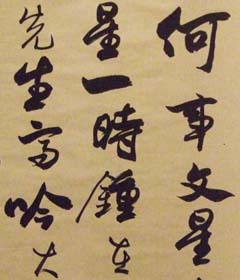 何事文星
星一時鍾在
先生高吟大